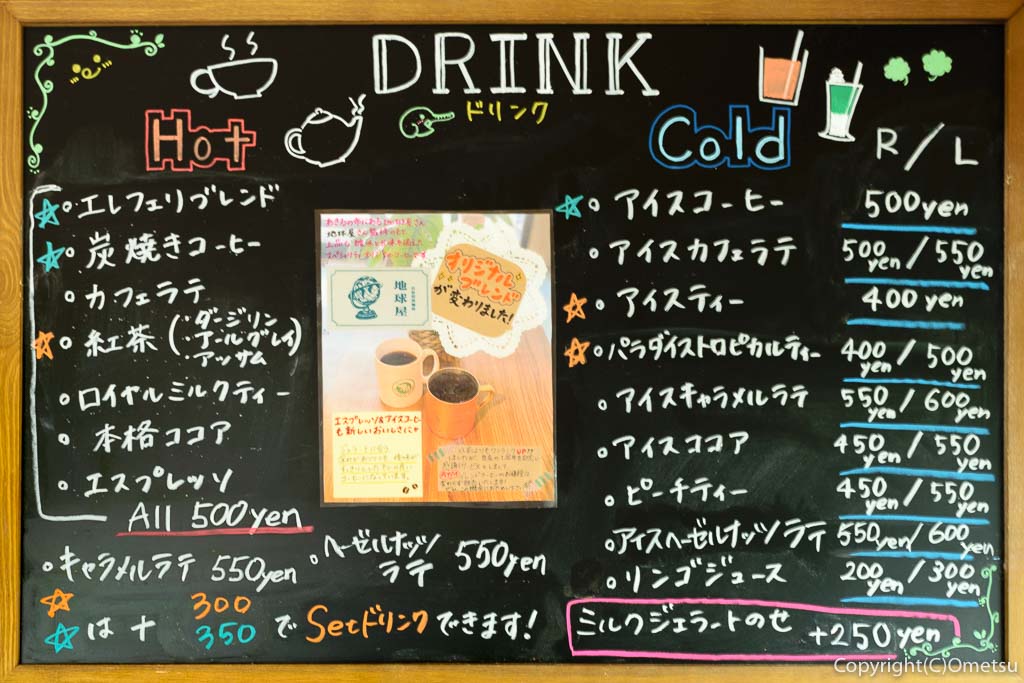 DRINK
ドリンク
Hot
エレフェリブレンド
炭焼きコーヒー
カフェラテ
紅茶(・ダージリン
・アールグレイ
・アッサム)
ロイヤルミルクティー
本格ココア
エスプレッソ
All 500yen
キャラメルラテ 550yen
ヘーゼルナッツ
ラテ 550yen
☆ 300
☆は+ 350 でSetドリンクできます!
オリジナル
ブレンド
が変わりました!
地球屋
エスプレッソ&アイスコーヒー
も新しいおいしさに
Cold
R/L
アイスコーヒー 500yen
アイスカフェラテ 500yen/550yen
アイスティー 400yen
パラダイストロピカルティー 400yen/500yen
アイスキャラメルラテ 550yen/600yen
アイスココア 450yen/550yen
ピーチティー 450yen/550yen
アイスヘーゼルナッツラテ 550yen/600yen
リンゴジュース 200yen/300yen
ミルクジェラートのせ +250yen
Copyright(C)Ometsu